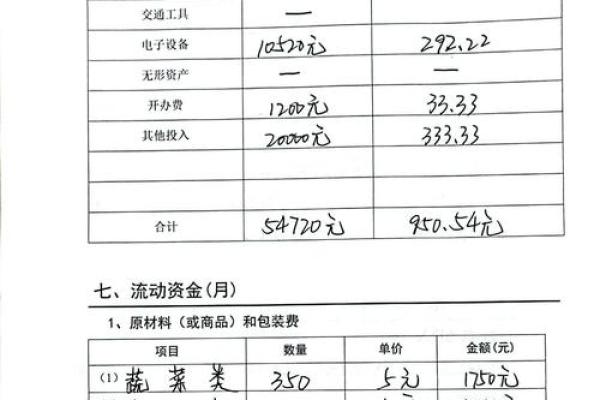 交通工具 —
电子设备 10520元 292.22
无形资产 — —
开办费 1200元 33.33
其他投入 20000元 333.33
合计 54720元 950.54元
七、流动资金(月)
1、原材料（或商品）和包装费
项目 数量 单价 金额(元)
(1) 蔬菜类 350 5元 1750元